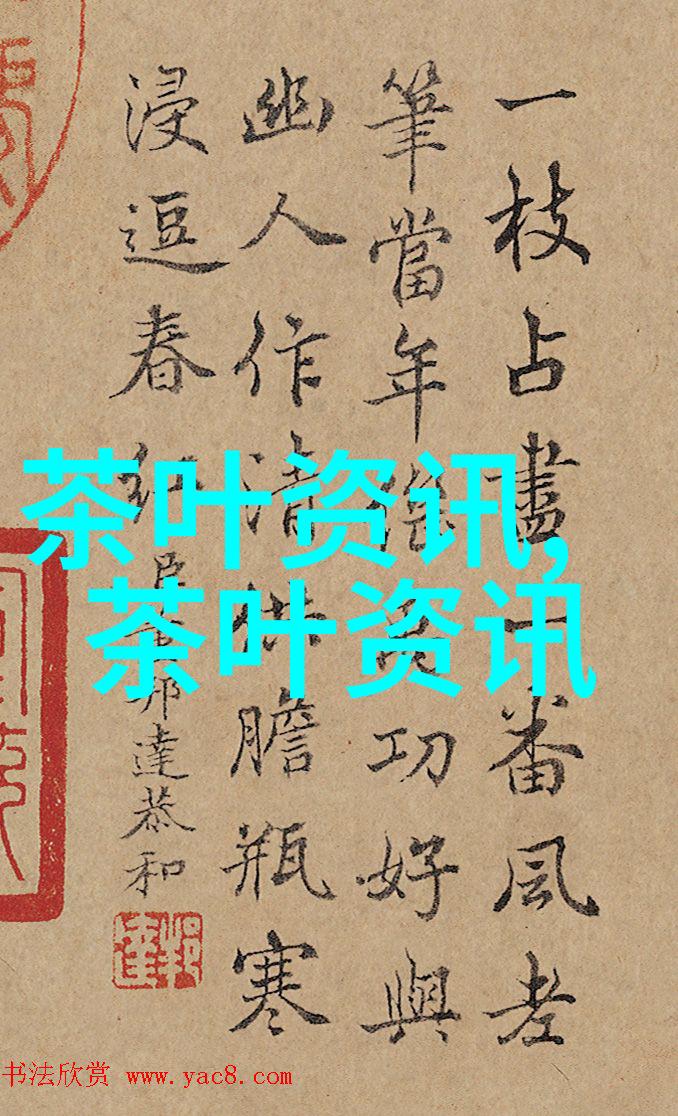 一枝占盡一番風老
筆當年功好與
幽人作清供膽瓶寒
浸逗春紅
臣董邦達恭和
邦達
茶叶资讯,
茶叶资讯
书法欣赏 www.yac8.com